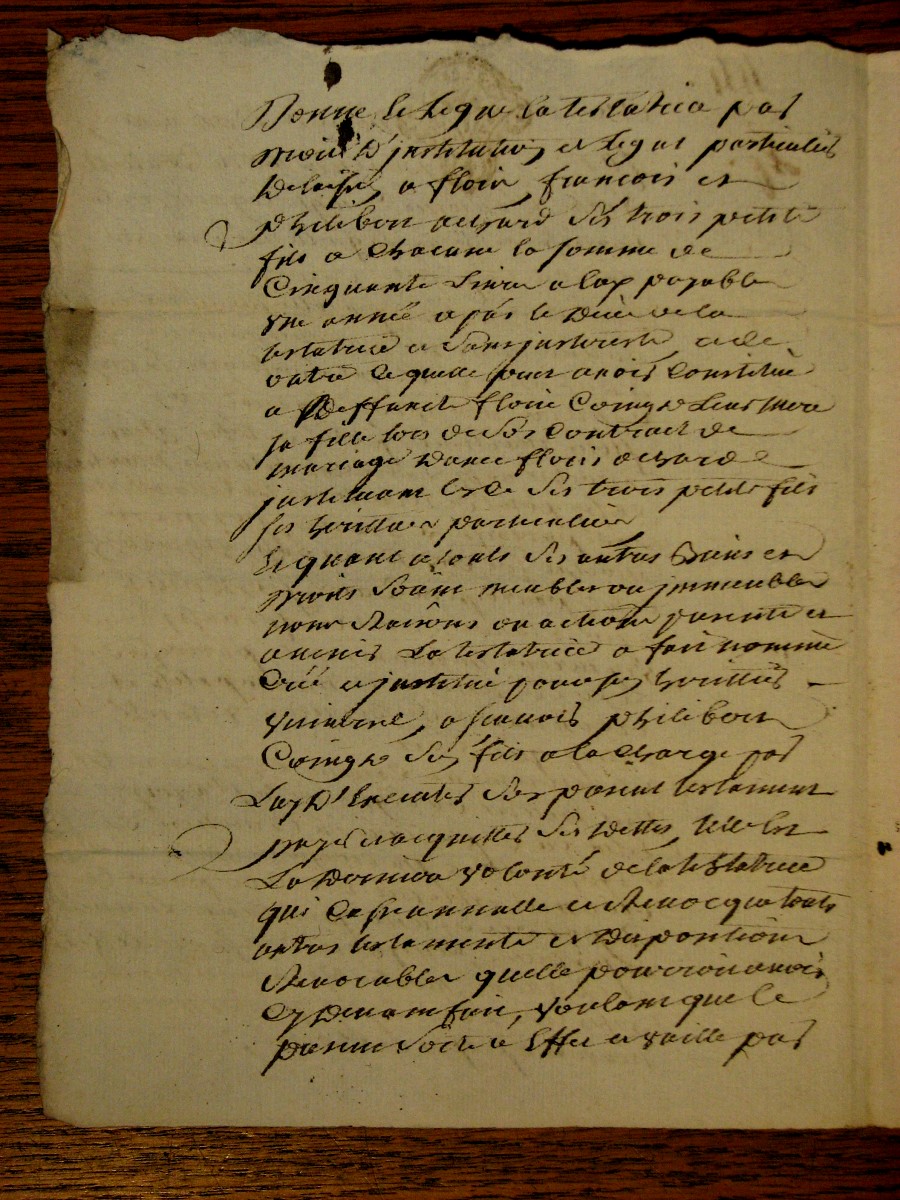 Donne et legue la testatrice par
droit d'institution et legat particulier
delaissé a floris françois et
philibert achard ses trois petits
fils a chacun la somme de
Cinquante livres a eux payable
une année apres le deces de la
testatrice et sans interest et de
outre ce quelle peut avoir Constitué
a deffuncte florie Coingt leur mere
sa fille lors de son Contract de
mariage avec floris achard
instituant les ses trois petits fils
ses heritiers particuliers
Et quant a touts ses autres biens et
droits soient meubles ou immeubles
noms Raisons ou actions presents et
avenir La testatrice a fait nommé
Créé et institué pour son heritier
universel a françois philibert
Coingt son fils a la charge par
Luy d'Executer son present testament
payer et acquitter ses dettes telle est
La derniere volonté de la testatrice
qui Casse annulle et Revocque touts
autres testaments et dispositions
Revocables quelle pourroit avoir
Cy devant fait, voulant que le
present sorte a Effet et vaille par